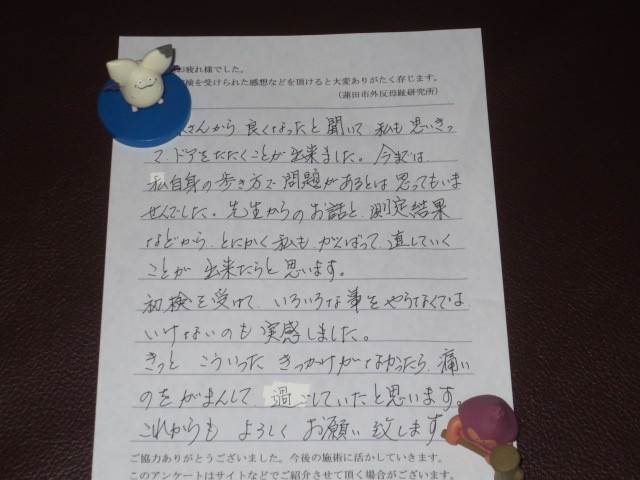 お疲れ様でした。
検を受けられた感想などを頂けると大変ありがたく存じます。
（蓮田市外反母趾研究所）
さんから、良くなったと聞いて、私も思いきっ
て、ドアをたたくことが出来ました。今までは
私自身の歩き方で問題があるとは思ってもいま
せんでした。先生からのお話と、測定結果
などから、とにかく私もがんばって、直していく
ことが出来たらと思います。
初検を受けて、いろいろな事をやらなくては
いけないのも実感しました。
きっと こういった きっかけがなかったら、痛い
のをがまんして、過ごしていたと思います。
これからも よろしく お願い致します
ご協力ありがとうございました。今後の施術に活かしていきます。
このアンケートはサイトなどでご紹介させて頂く場合がございます。